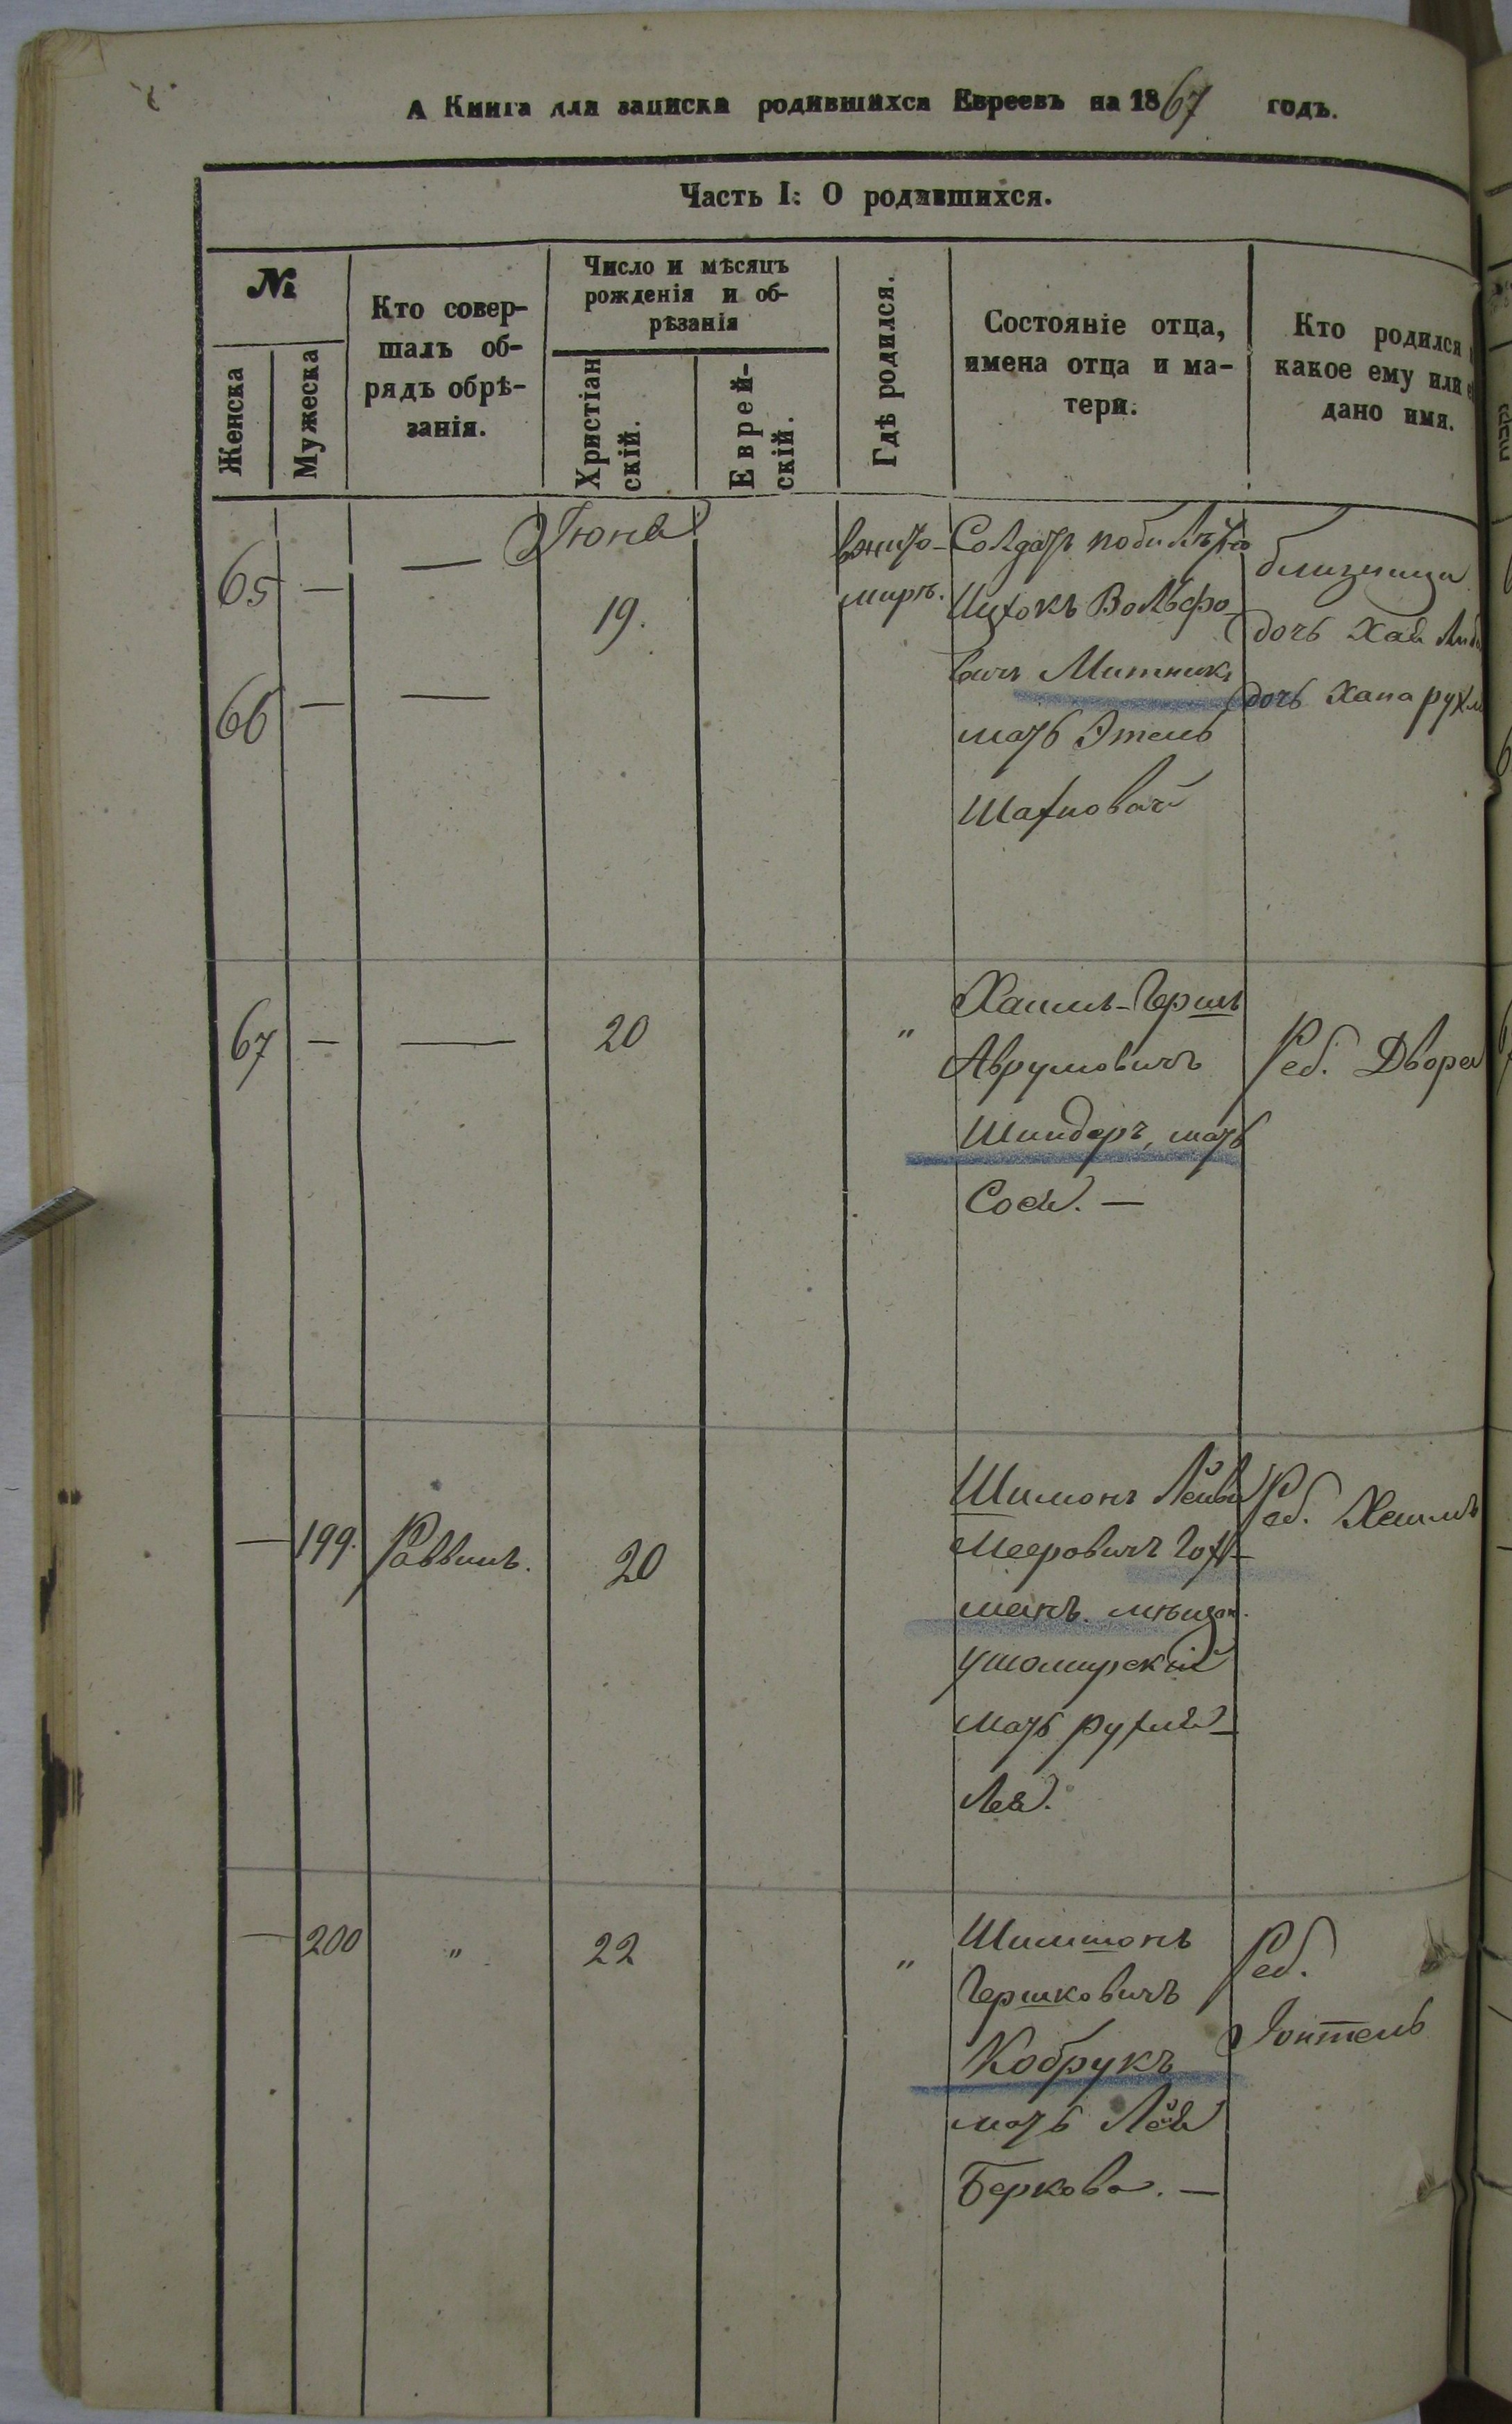 А Книга для записки родившихся Евреевъ на 1867 годъ.
Часть I: О родившихся.
№
Женска
Мужеска
Кто совер-
шалъ об-
рядъ обрѣ-
занія.
Число и мѣсяцъ
рожденія и об-
рѣзанія
Христіан
скій.
Еврей-
скій.
Гдѣ родился.
Состояніе отца,
имена отца и ма-
тери.
Кто родился
какое ему или
дано имя.
Іюня
65 — —
19.
66 — —
вжито-
мирѣ.
Солдатъ
Ицхокъ Вольфо-
вичъ Митникъ
мать Этель
Шахновая
близнецы
дочь Хая
дочь Хана рухл
67 — —
20
"
Хаимъ-Гершъ
Аврумовичъ
Шиндеръ, мать
Сося. —
Реб. Двора
— 199.
Раввинъ.
20
Шимонъ Лейба
Мееровичъ Гох-
манъ мѣщан.
ушомирскій
мать рухля-
Лея.
Реб. Хаимъ
— 200
"
22
"
Шимшонъ
Гершковичъ
Кобрукъ
мать Лея
Беркова. —
Реб.
Іонтель